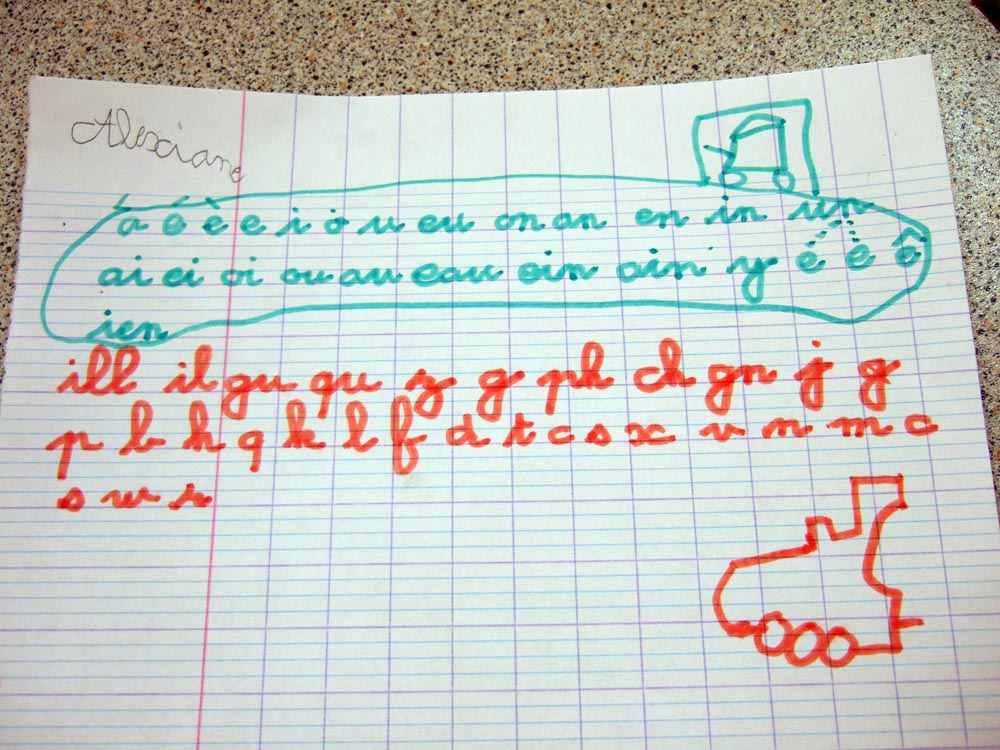 Alexiane
a é è e i o u eu on an en in un
ai ei oi ou au eau ein ain y ë ê
ien
ill il gu qu z g ph ch gn j g
p b h q k l f d t c s x v n m c
s w r